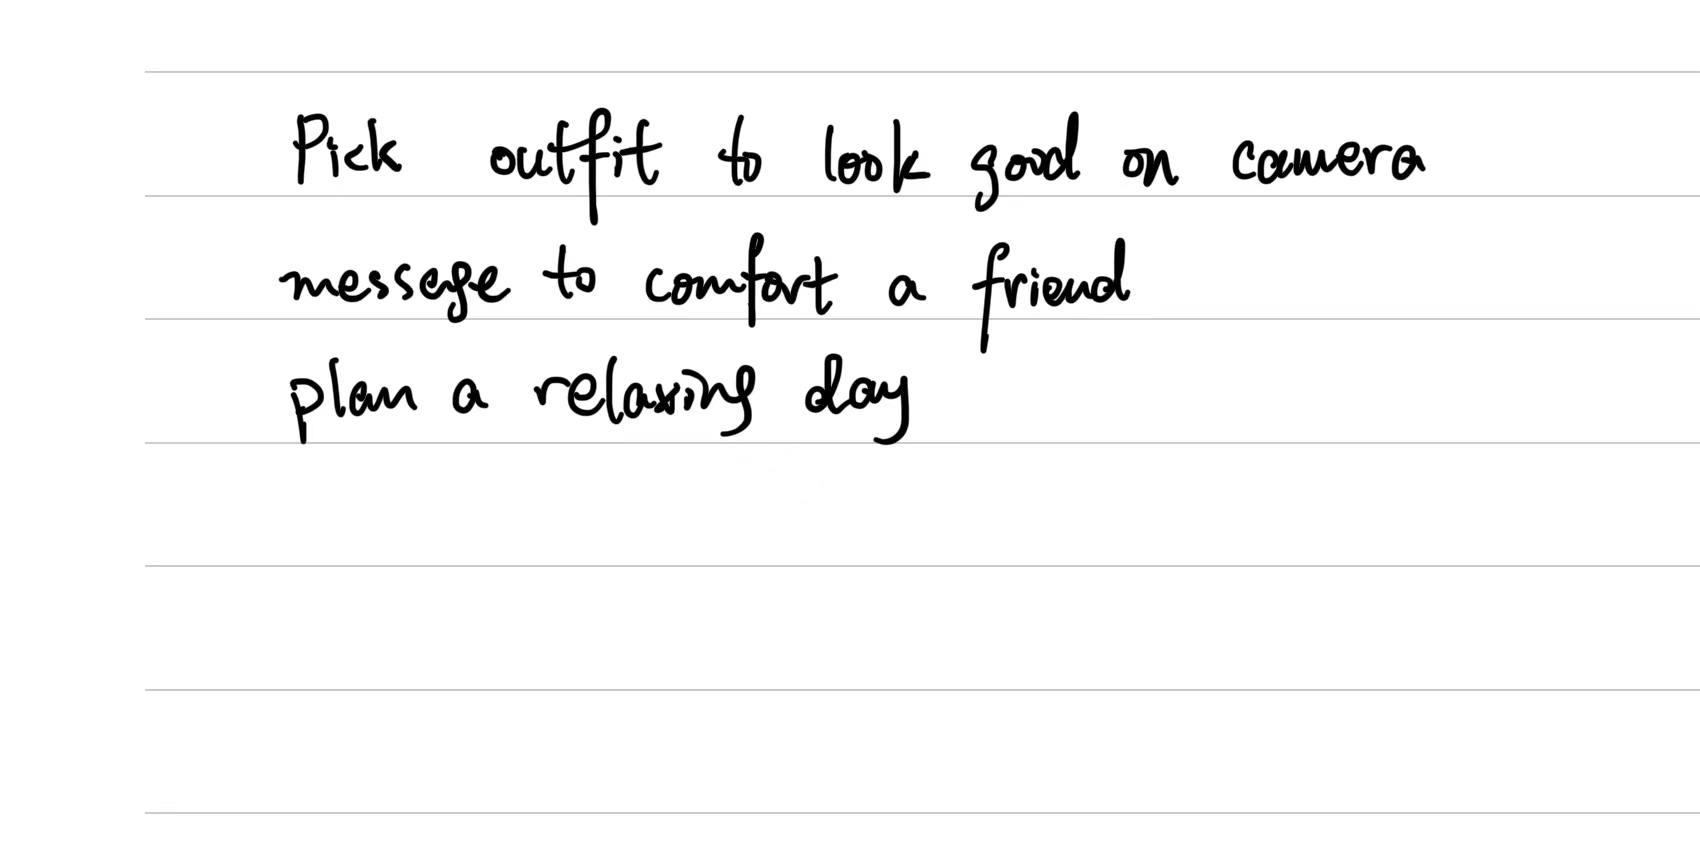 Pick outfit to look good on camera
message to comfort a friend
plan a relaxing day